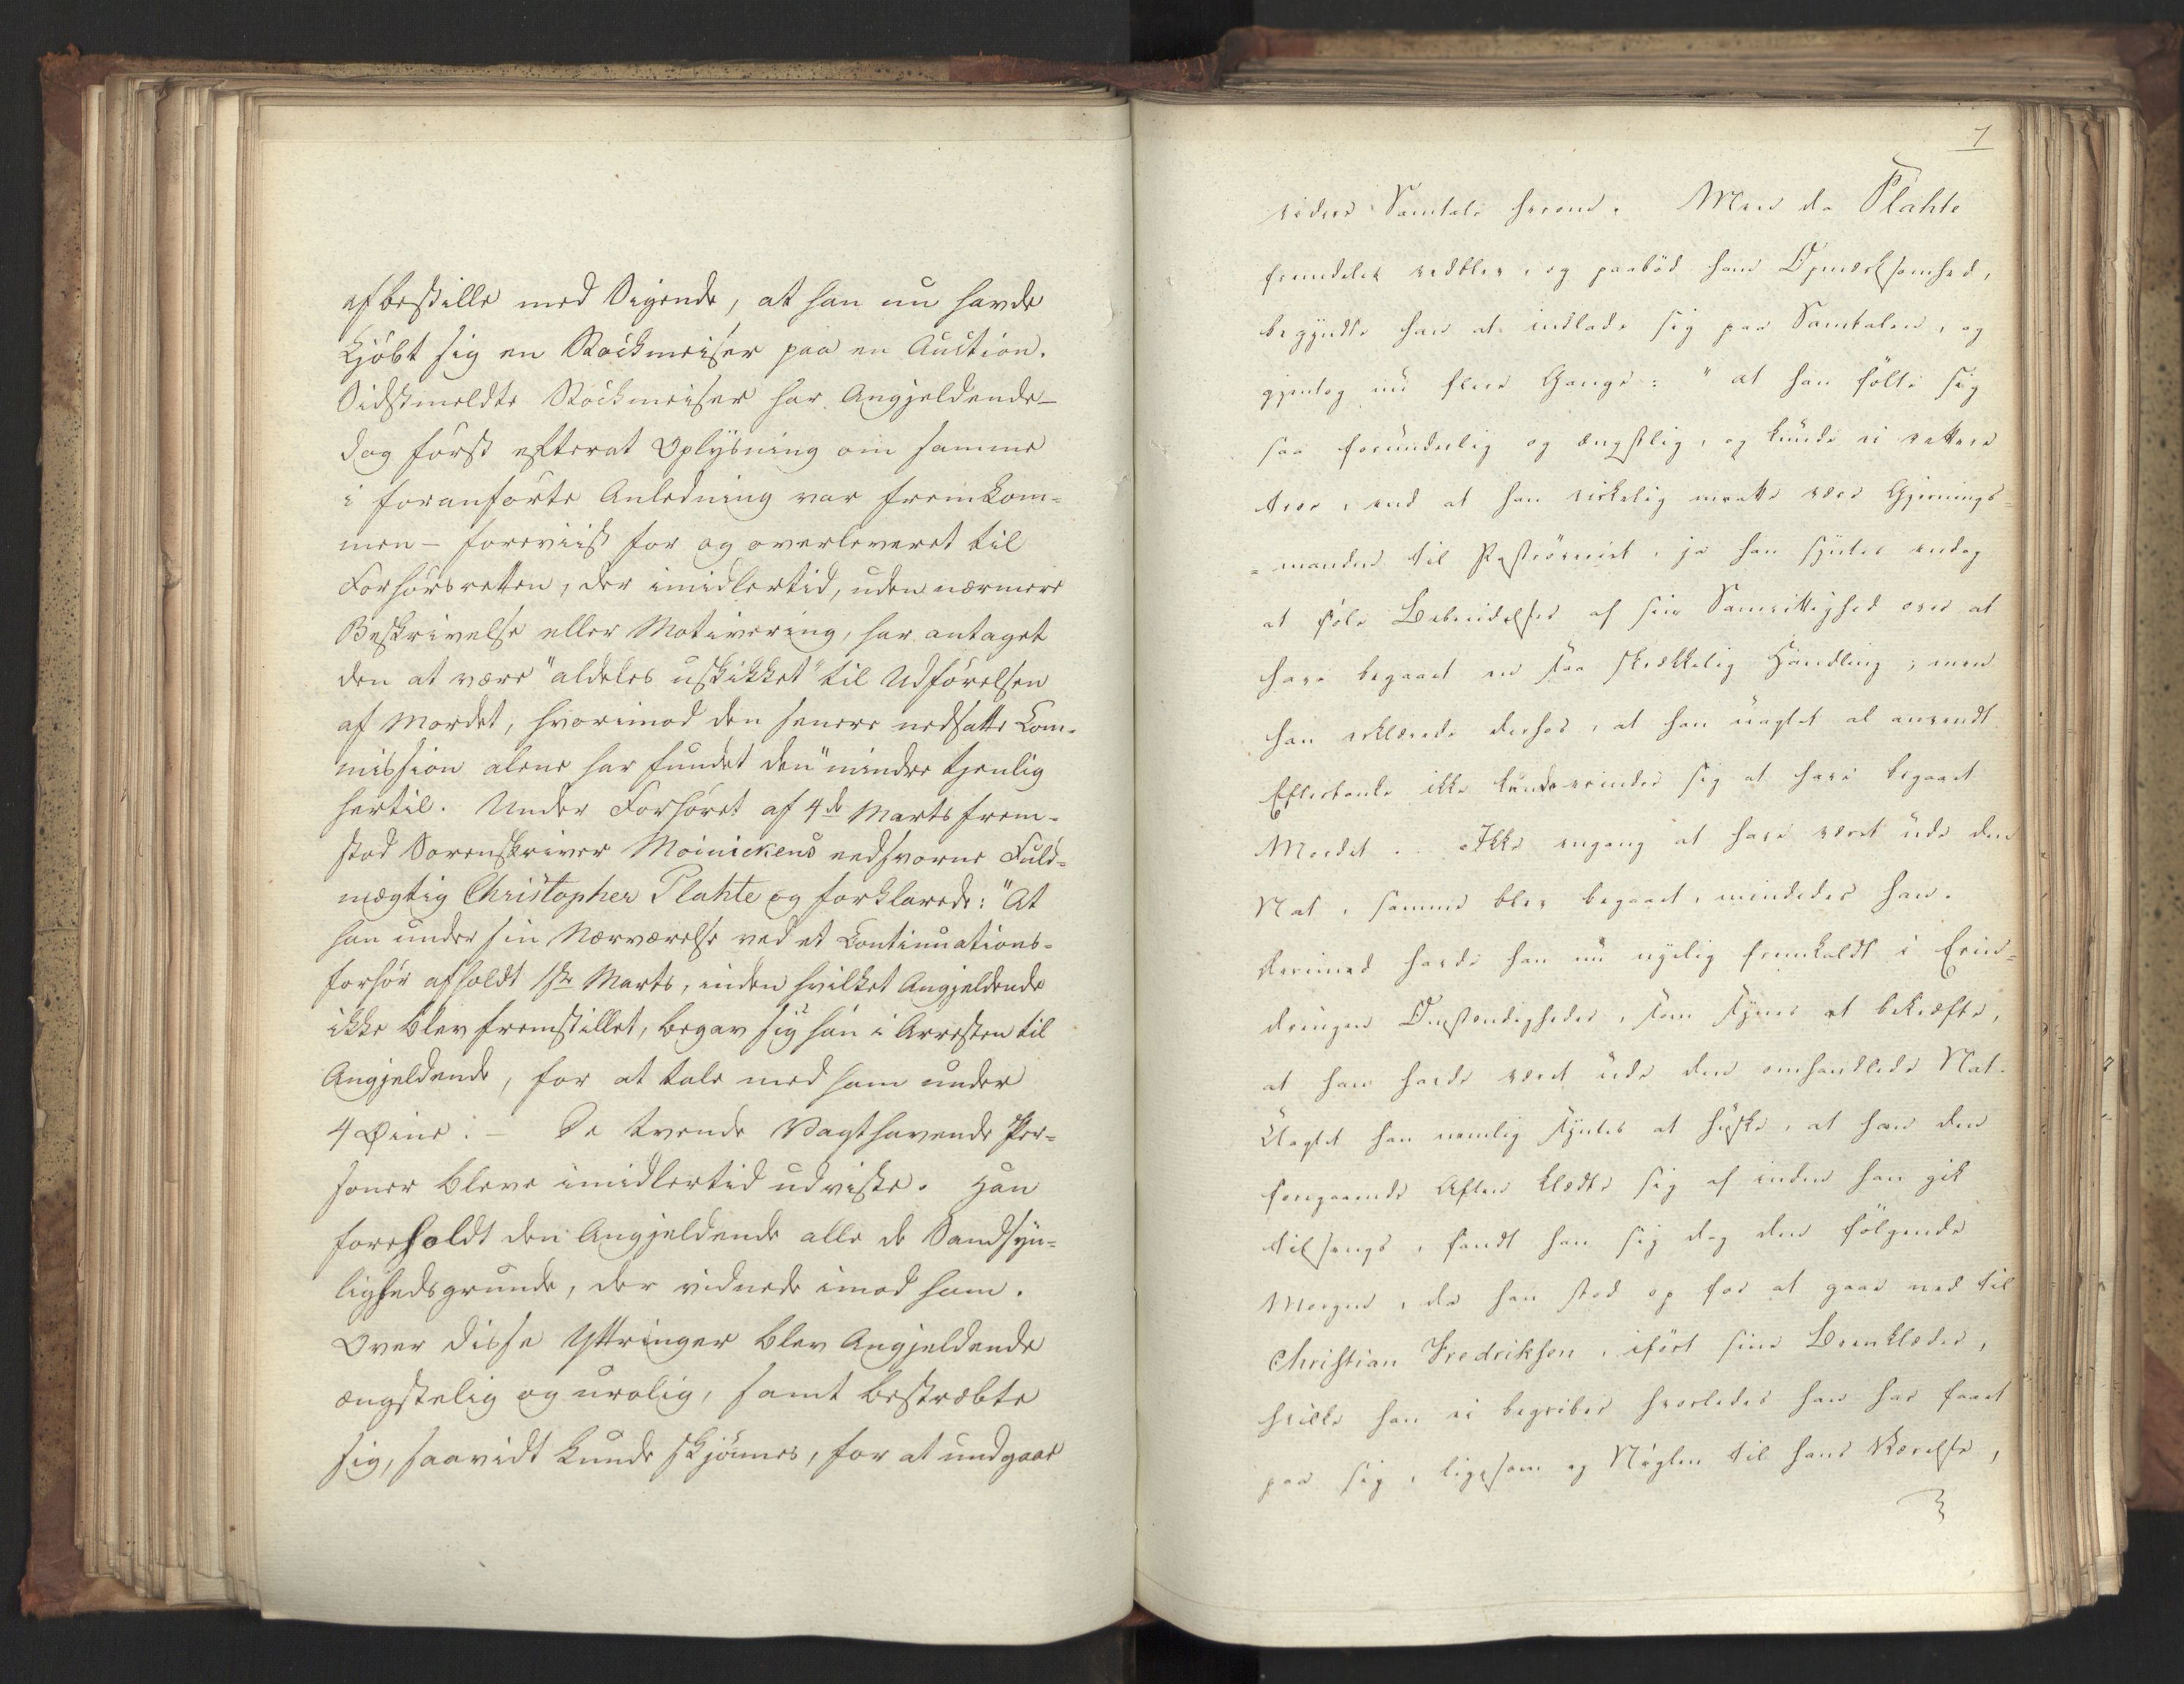 afbestille med Sigende, at han nu havde
kjöbt sig en Stockmeiser paa en Auction.
Sidstmeldte Stockmeiser har Angjeldende –
dog först efterat Oplysning om samme
i foranförte Anledning var fremkom-
men – foreviist for og overleveret til
Forhörsretten, der imidlertid, uden nærmere
Beskrivelse eller Motivering, har antaget
den at være "aldeles uskikket" til Udförelsen
af Mordet, hvorimod den senere nedsatte Com-
mission alene har fundet den "mindre tjenlig
hertil. Under Forhöret af 4de Marts frem-
stod Sorenskriver Moinickens eedsvorne Fuld-
mægtig Christopher Plahte og forklarede: "At
han under sin Nærværelse ved et Continuations-
forhör afholdt 1ste Marts, inden hvilket Angjeldende
ikke blev fremstillet, begav sig han i Arresten til
Angjeldende, for at tale med ham under
4 Øine. – De tvende Vagthavende Per-
soner bleve imidlertid udviste. Han
foreholdt den Angjeldende alle de Sandsyn-
lighedsgrunde, der vidnede imod ham.
Over disse Yttringer blev Angjeldende
ængstelig og urolig, samt bestræbte
sig, saavidt kunde skjönnes, for at undgaae
7
videre Samtale herom. Men da Plahte
fremdeles vedblev, og paabød ham Opmærksomhed,
begyndte han at indlade sig paa Samtalen, og
gjentog nu flere Gange: "at han fölte sig
saa forunderlig og ængstlig, og kunde ei rettere
troe, end at han virkelig maatte være Gjernings-
=manden til Poströveriet, ja han syntes endog
at föle Bebreidelser af sin Samvittighed over at
have begaaet en saa skrækkelig Handling; men
han erklærede derhos, at han uagtet al anvendt
Eftertanke ikke kunde erindre sig at have begaaet
Mordet. Ikke engang at have været ude den
Nat, samme blev begaaet, mindedes han.
Derimod havde han nu nyelig fremkaldt i Erin-
dringen Omstændigheder, som synes at bekræfte,
at han havde været ude den omhandlede Nat.
Uagtet han nemlig syntes at huske, at han den
foregaaende Aften klædte sig af inden han gik
tilsengs, fandt han sig dog den fölgende
Morgen, da han stod op for at gaae ned til
Christian Fredriksen, ifört sine Beenklæder,
hvilke han ei begriber hvorledes han har faaet
paa sig, ligesom og Nöglen til hans Værelse,